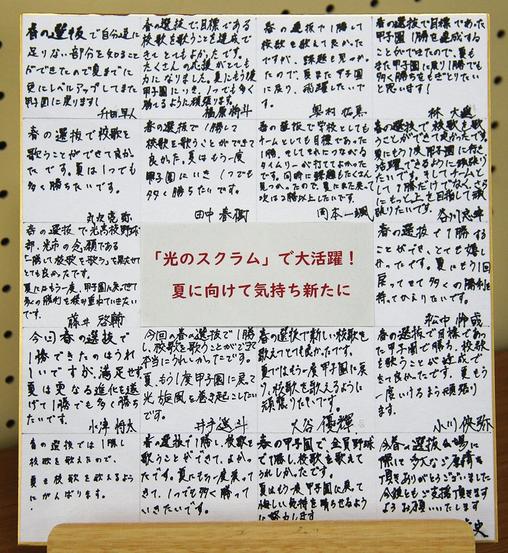 春の選抜で自分達に
足りない部分を知ること
ができたので夏までに
更にレベルアップしてまた
甲子園に戻ります!
升田早人
春の選抜で目標である
校歌を歌うことを達成で
きとてもよかったです。
たくさんの応援がとても
力になりました。夏にもう1度
甲子園にいき、1つでも多く
勝てるように頑張ります。
春の選抜で1勝して
校歌を歌えて良かった
ですが、課題も見つかっ
たので夏また甲子園
に戻り、活躍したいで
す。
奥村
春の選抜で目標であった
甲子園1勝を達成する
ことができたので、夏も
また甲子園に戻り1勝でも
多く勝ちをもぎとりたい
と思います!
林 大
春の選抜で校歌を
歌うことができて良かっ
た です。夏は1つでも
多く勝ちたいです。
春の選抜で1勝して
校歌を歌うことができて
良かた。夏はもう一度
甲子園にいき 1つでも
多く勝ちたいです。
田中 春樹
春の選抜で学校としても
チームとしても目標であった1
勝、そしてそれにつながる
タイムリーが打ててよかったで
す。同時に課題もたくさん
見つかったので、夏にまた戻って
次は2勝以上したいです。
岡本 一
春の選抜で校歌を歌い
ことができて良かったです。
夏にもう1度甲子園に行き
活躍できるように頑張り
たいです。そしてチームと
して1勝だけでなく、さら
にもっと上を目指して頑
張りたいです。
春の選抜で光高校野球
部、光市の念願である
「勝って校歌を歌う」を果たせて
とても良かたです。
夏にはもう一度、甲子園に戻ってきて
多くの勝利を積み重ねていきたい
です。
藤井 啓輔
「光のスクラム」で大活躍!
夏に向けて気持ち新たに
春の選抜で1勝する
ことができ、とても嬉し
かったです。夏にもう1回
戻ってきて多くの勝利を
持ってかえりたいです。
今回春の選抜で
1勝できたのはうれし
いですが、満足せず
夏は更なる進化を遂
げて1勝でも多く勝ち
たいです。
小澤 将太
今回の春の選抜で1勝
し、校歌を歌うことができて
本当にうれしかったです。
夏、もう1度甲子園に戻って
光旋風を巻き起こしたい
です。
井手 遥斗
春の選抜で新しい校歌を
歌えてとても良かたです。
夏ではもう一度甲子園に戻
り、校歌を歌えるように
頑張りたいです。
大谷 優輝
春の選抜で目標であっ
た甲子園で勝ち、校歌を
歌うことが達成で
きて良かったです。夏もう
一度いけるよう頑張り
ます。
小川
春の選抜では1勝し
校歌も歌えたので、
夏も校歌を歌えるように
がんばります。
春の選抜で1勝し、校歌も
歌うことができて、よかっ
たです。夏にもう一度戻って
きて、1つでも多く勝って
いきたいです。
春の甲子園で全員野球
で1勝し校歌を歌えて
うれしかったです。
夏はもう一度甲子園に戻って
悔しい気持を晴らせるように
努力します。
今春の選抜出場に
際して多大なご声援を
頂きありがとうございました。
今後ともご支援頂きます
ようお願いいたします。